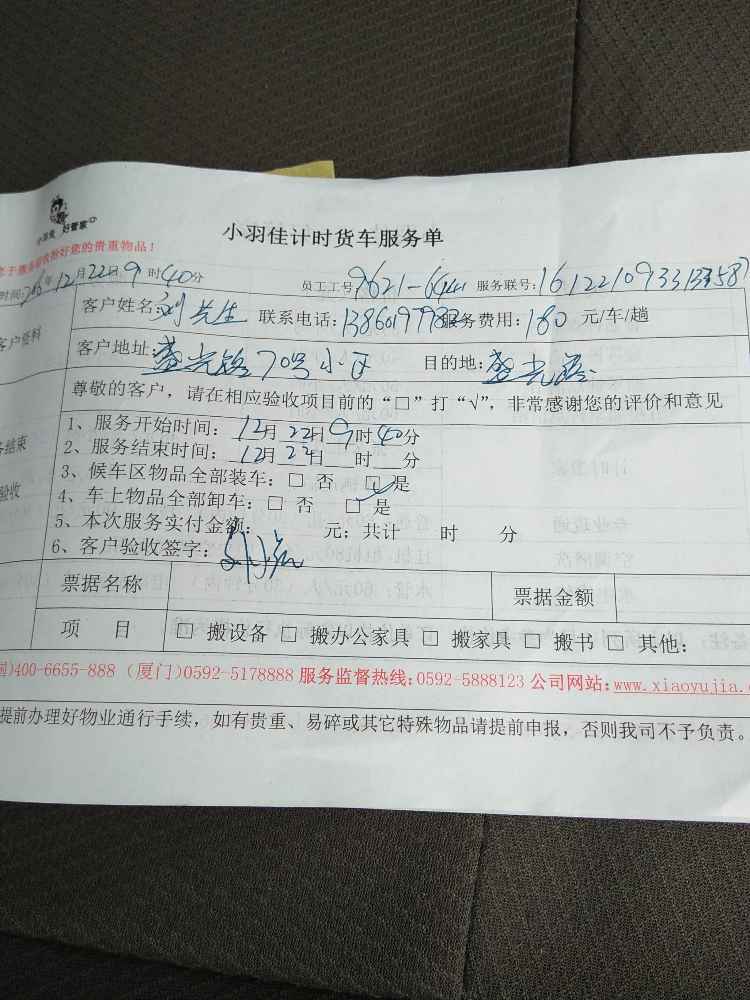 小羽佳 好管家
小羽佳计时货车服务单
您的贵重物品！
时间:2016年12月22日9时40分 员工工号 9621-6944 服务联号:161221093313358
客户资料
客户姓名:刘先生 联系电话: 服务费用:180元/车/趟
客户地址: 70号小区 目的地:
尊敬的客户，请在相应验收项目前的“□”打“√”,非常感谢您的评价和意见
1、服务开始时间: 12月22日9时40分
2、服务结束时间: 12月22日 时 分
3、候车区物品全部装车:□ 否 □ 是
4、车上物品全部卸车:□ 否 □ 是
5、本次服务实付金额: 元;共计 时 分
6、客户验收签字:
验收
票据名称 票据金额
项 目 □ 搬设备 □ 搬办公家具 □ 搬家具 □ 搬书 □ 其他:
)400-6655-888 (厦门)0592-5178888 服务监督热线:0592-5888123 公司网站:www.xiaoyujia.
提前办理好物业通行手续，如有贵重、易碎或其它特殊物品请提前申报，否则我司不予负责。